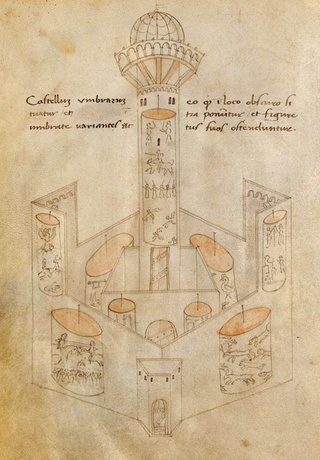 Castelluʒ vmbraruʒ eo ꝙ i loco obscuro si
tuatur et tra ponūtur et figure
umbrate variantes ac tus suos ostenduntur.